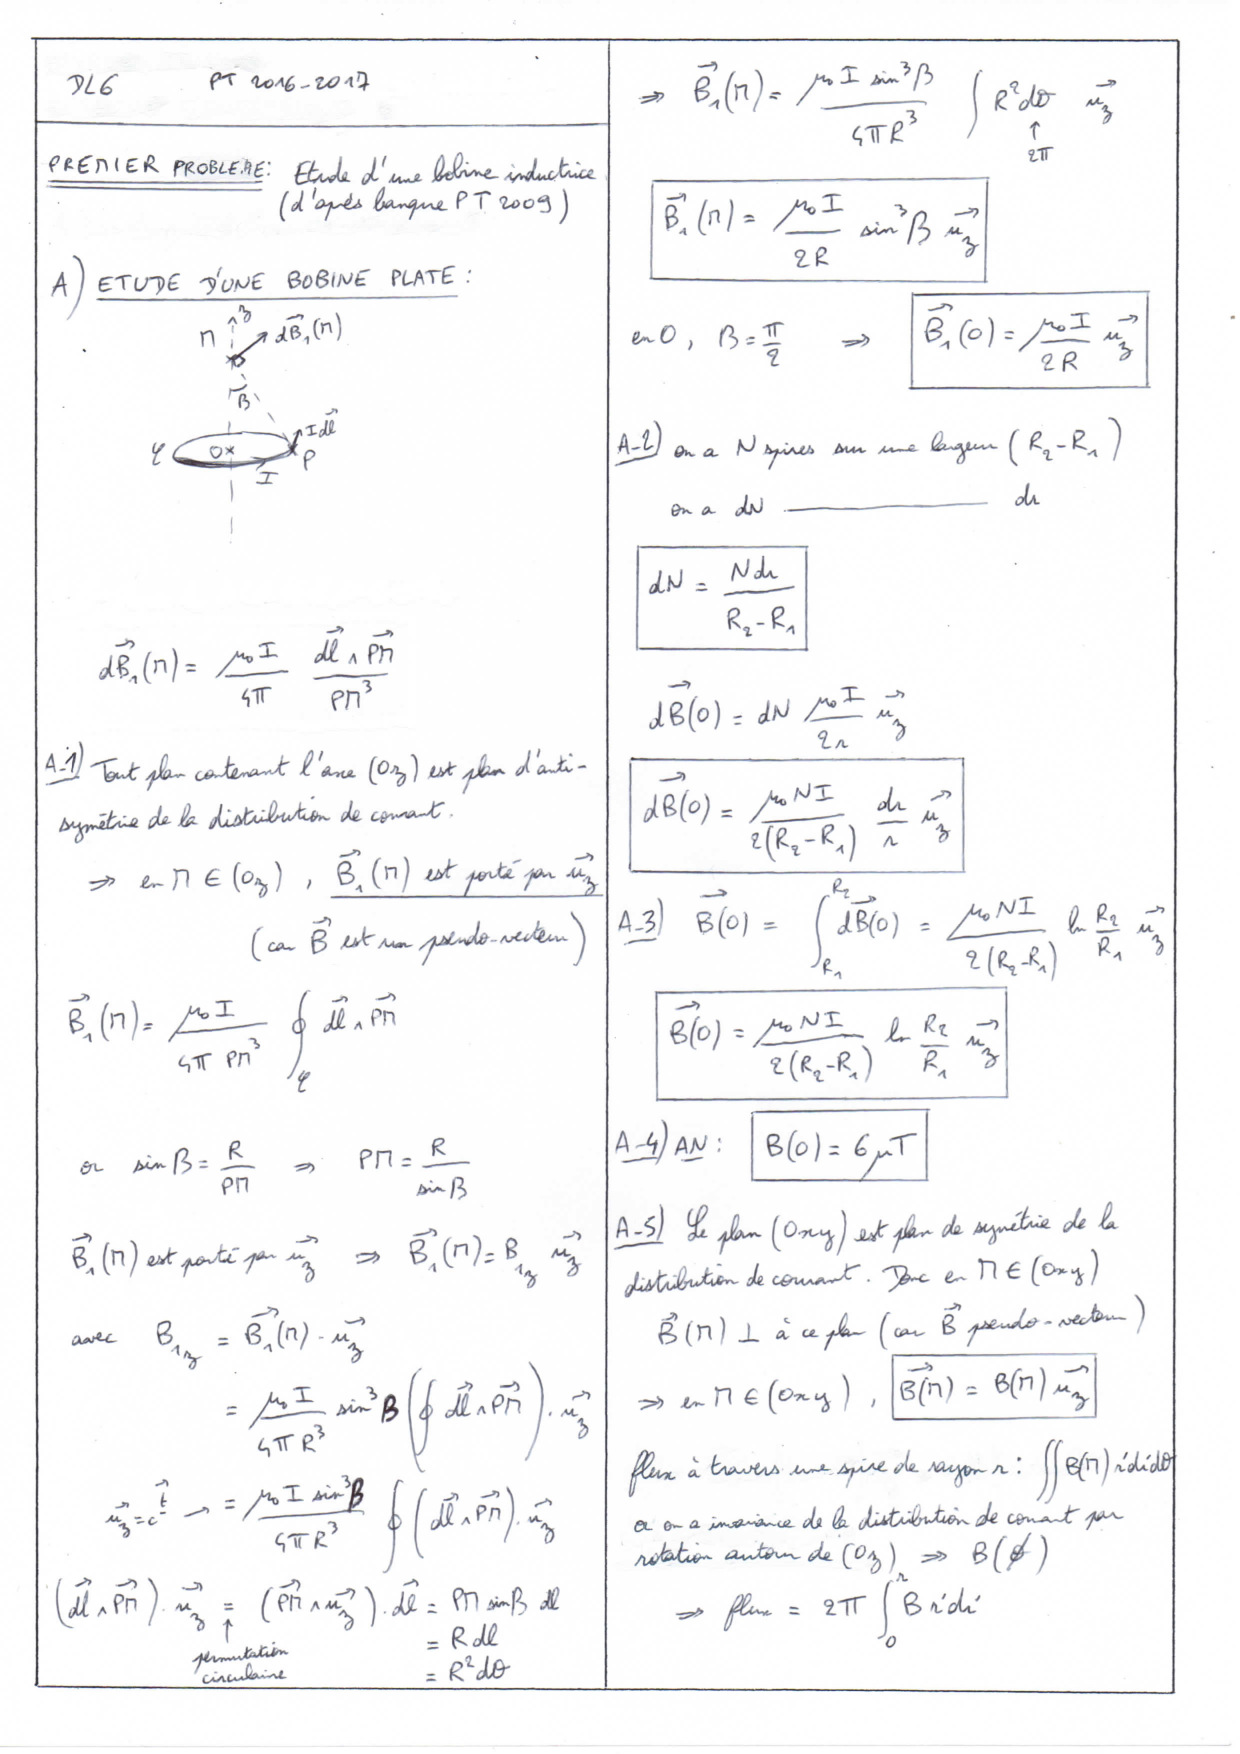 DL6 PT 2016-2017
PREMIER PROBLEME: Etude d'une bobine inductrice
(d'après banque PT 2009)
A) ETUDE D'UNE BOBINE PLATE :
z
M dB₁(M)→
β
I dl→
𝒞 O× P
I
dB₁→(M) = μ₀I/4π dl→ ∧ PM→/PM³
A-1) Tout plan contenant l'axe (Oz) est plan d'anti-
symétrie de la distribution de courant.
⇒ en M ∈ (Oz) , B₁→(M) est porté par u_z→
(car B→ est un pseudo-vecteur)
B₁→(M) = μ₀I/4π PM³ ∮_𝒞 dl→ ∧ PM→
or sin β = R/PM ⇒ PM = R/sin β
B₁→(M) est porté par u_z→ ⇒ B₁→(M) = B₁z u_z→
avec B₁z = B₁→(M) · u_z→
= μ₀I/4πR³ sin³β (∮ dl→ ∧ PM→) · u_z→
u_z→ = c^t → = μ₀I sin³β/4πR³ ∮ (dl→ ∧ PM→) · u_z→
(dl→ ∧ PM→) · u_z→ = (PM→ ∧ u_z→) · dl→ = PM sin β dl
↑ permutation = R dl
circulaire = R²dθ
⇒ B₁→(M) = μ₀I sin³β/4πR³ ∫ R²dθ u_z→
↑
2π
B₁→(M) = μ₀I/2R sin³β u_z→
en O, β = π/2 ⇒ B₁→(O) = μ₀I/2R u_z→
A-2) on a N spires sur une largeur (R₂-R₁)
on a dN ———— dr
dN = Ndr/R₂-R₁
dB→(O) = dN μ₀I/2r u_z→
dB→(O) = μ₀NI/2(R₂-R₁) dr/r u_z→
A-3) B→(O) = ∫_R₁^R₂ dB→(O) = μ₀NI/2(R₂-R₁) ln R₂/R₁ u_z→
B→(O) = μ₀NI/2(R₂-R₁) ln R₂/R₁ u_z→
A-4) AN : B(O) = 6 μT
A-5) Le plan (Oxy) est plan de symétrie de la
distribution de courant. Donc en M ∈ (Oxy)
B→(M) ⊥ à ce plan (car B→ pseudo-vecteur)
⇒ en M ∈ (Oxy) , B→(M) = B(M) u_z→
flux à travers une spire de rayon r : ∬ B(M) r'dr'dθ
or on a invariance de la distribution de courant par
rotation autour de (Oz) ⇒ B(θ̸)
⇒ flux = 2π ∫₀^r B r'dr'